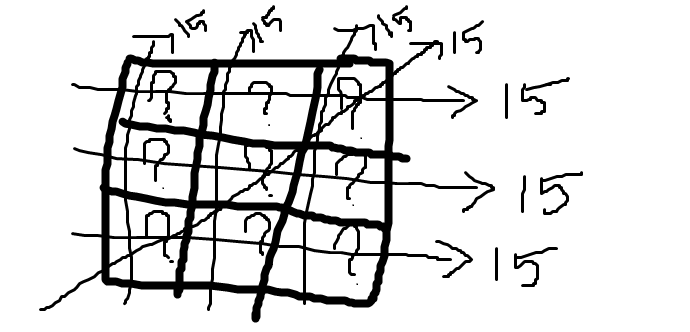 15 15 15 15
? ? ? 15
? ? ? 15
? ? ? 15